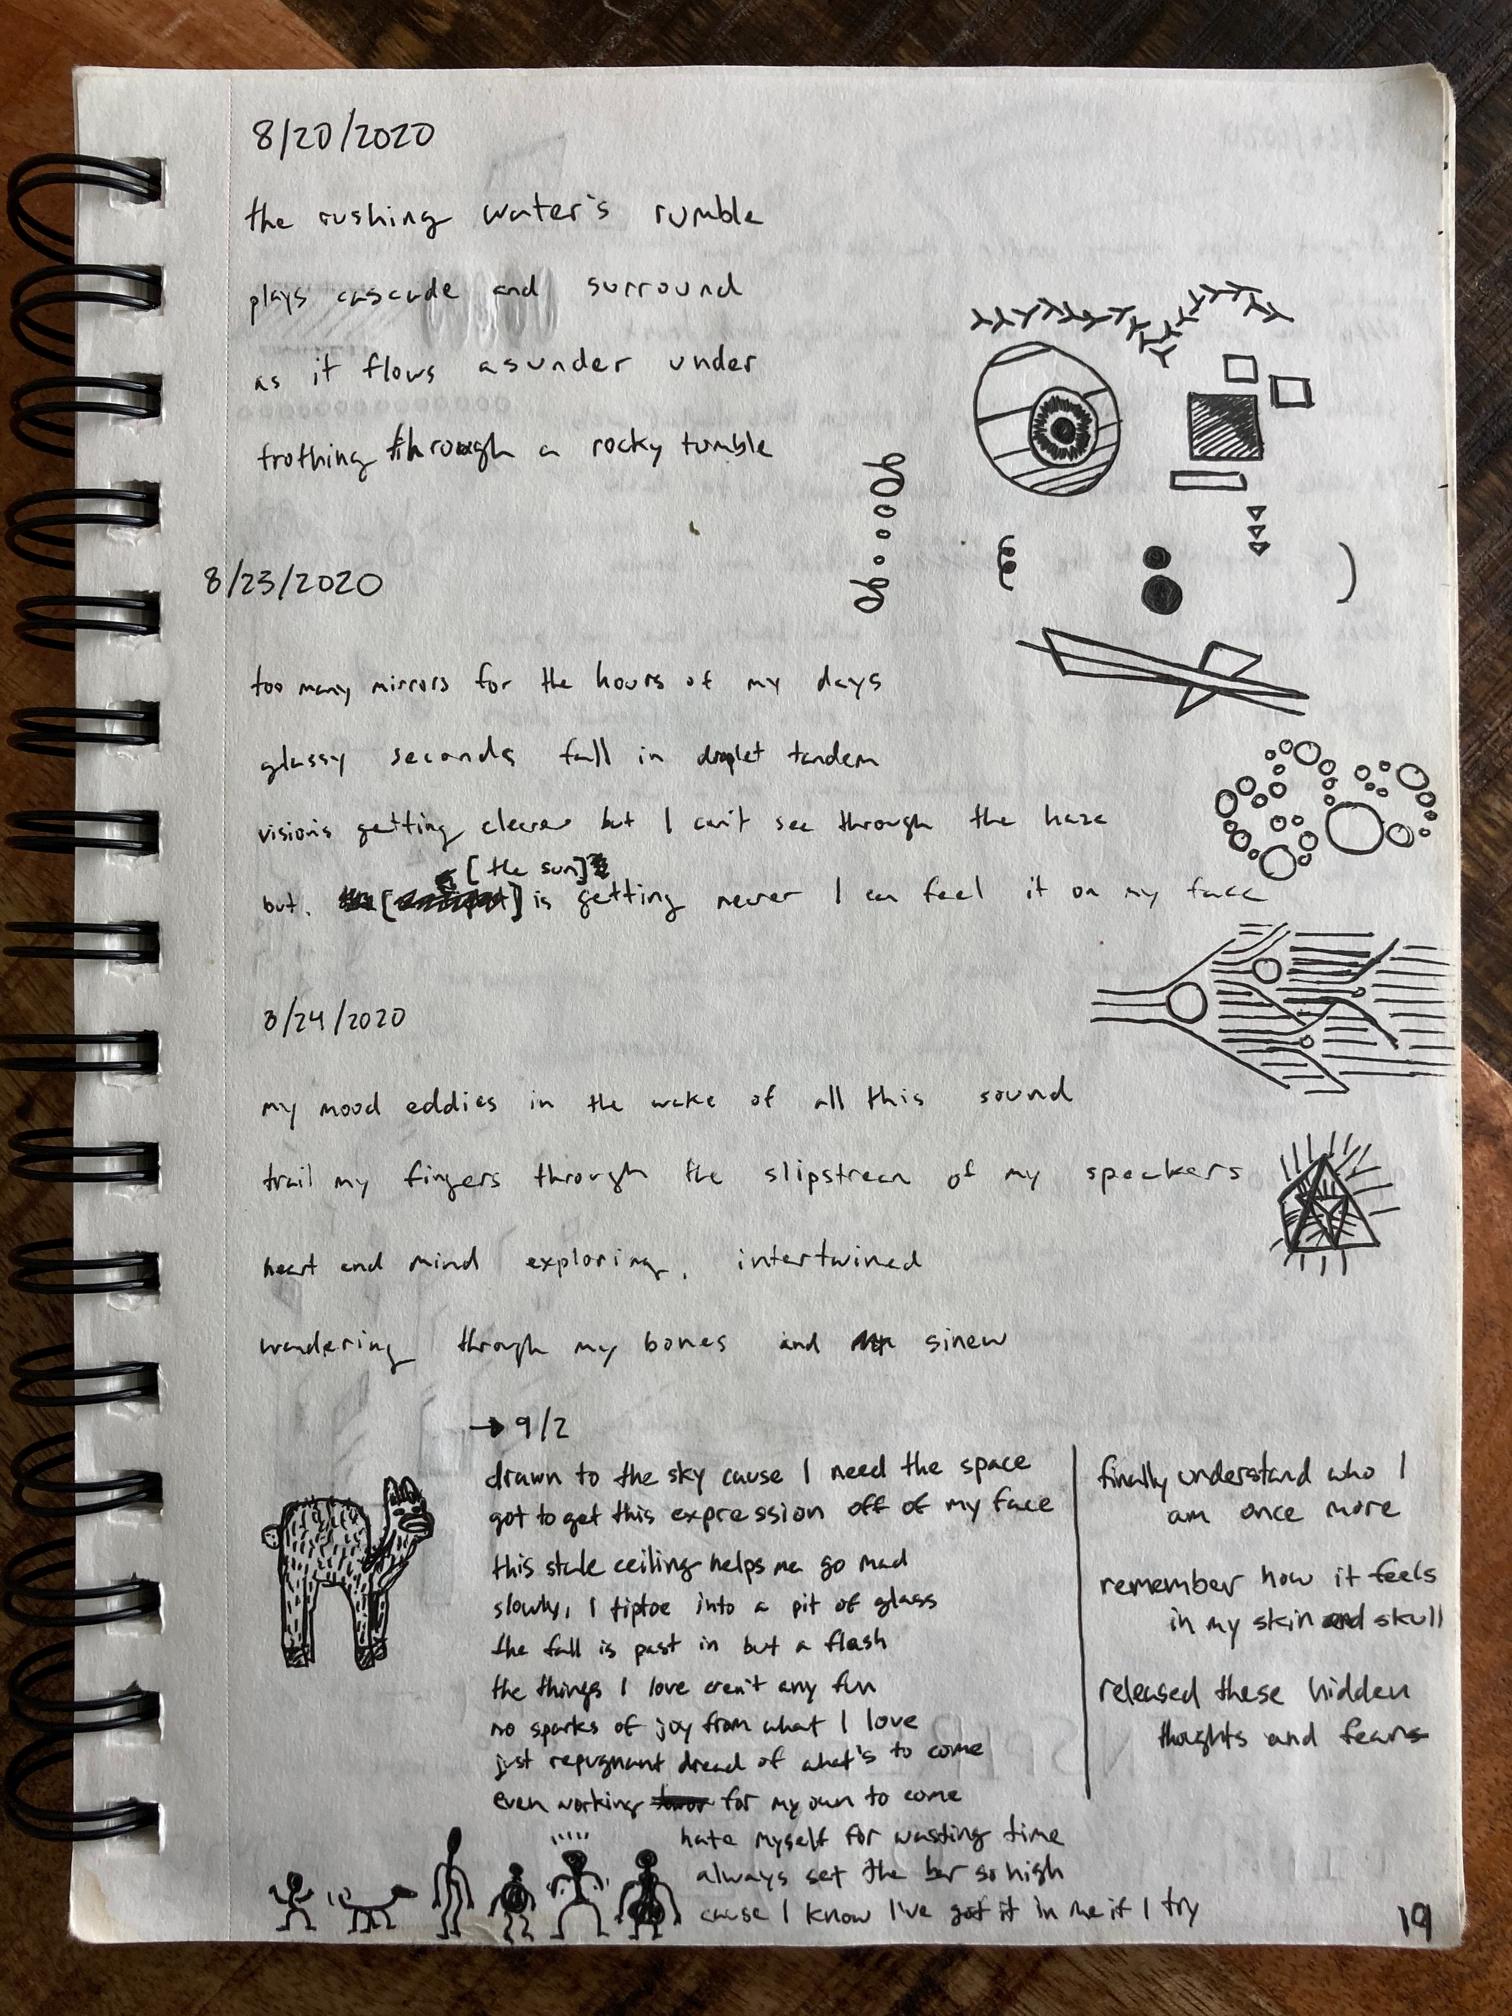 8/20/2020
the rushing water's rumble
plays cascade and surround
as it flows asunder under
frothing through a rocky tumble
8/23/2020
too many mirrors for the hours of my days
glassy seconds fall in droplet tandem
visions getting clearer but I can't see through the haze
[the sun]
but. [ ] is getting never I can feel it on my face
8/24/2020
my mood eddies in the wake of all this sound
trail my fingers through the slipstream of my speakers
heart and mind exploring, intertwined
wandering through my bones and sinew
→ 9/2
drawn to the sky cause I need the space
got to get this expression off of my face
this stale ceiling helps me go mad
slowly, I tiptoe into a pit of glass
the fall is past in but a flash
the things I love aren't any fun
no sparks of joy from what I love
just repugnant dread of what's to come
even working for my own to come
hate myself for wasting time
always set the bar so high
cause I know I've got it in me if I try
finally understand who I
am once more
remember how it feels
in my skin and skull
released these hidden
thoughts and fears
19